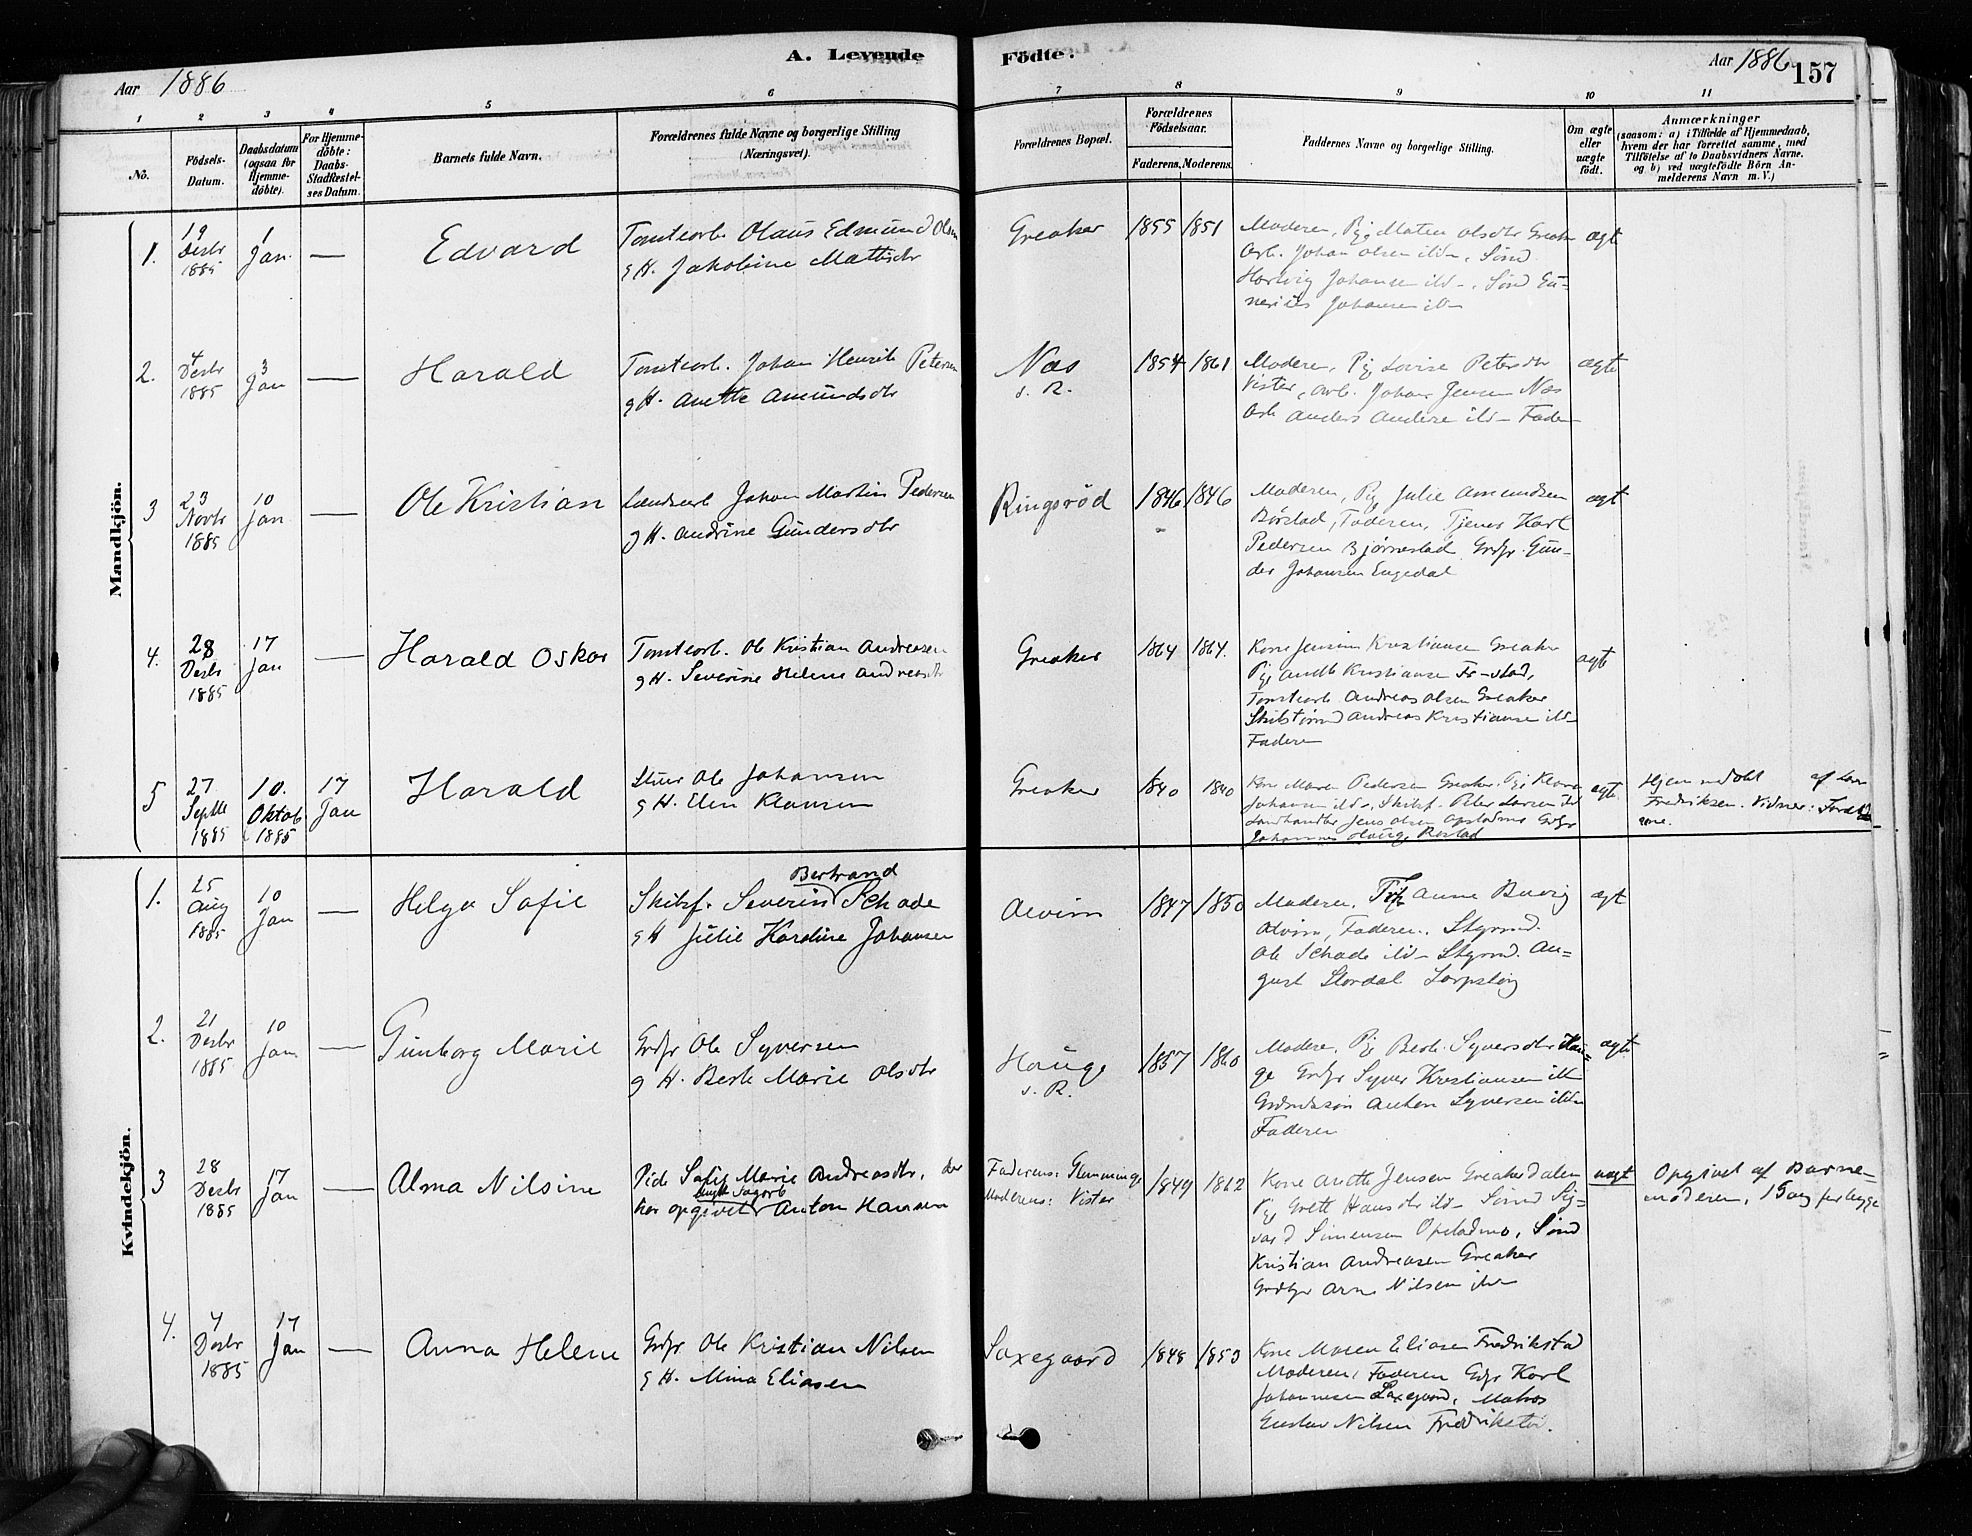 A. Levende Födte.
Aar 1886
Aar 1886.
157
1 2 3 4 5 6 7 8 9 10 11
No.
Födsels-Datum.
Daabsdatum (ogsaa for Hjemme-döbte).
For Hjemme-döbte: Daabs-Stadfestel-ses Datum.
Barnets fulde Navn.
Forældrenes fulde Navne og borgerlige Stilling (Næringsvei).
Forældrenes Bopæl.
Forældrenes Födselsaar.
Faderens. Moderens.
Faddernes Navne og borgerlige Stilling.
Om ægte eller uægte födt.
Anmærkninger
(saasom: a) i Tilfælde af Hjemmedaab, hvem der har forrettet samme, med Tilföielse af to Daabsvidners Navne, og b) ved uægtefödte Börn An-melderens Navn m. V.)
Mandkjön.
1. 19 Desbr 1885 1 Jan. — Edvard
Tomtearb. Olaus Edmund Olsen
g H. Jakobine Mattisdr
Greaker 1855 1851
Moderen, Pig. Maten Olsdtr Greaker
Arb. Johan Olsen ibd., Sönd
Hartvig Johansen ibd., Sönd Gu-
nerius Johansen ibd
ægt
2. 4 Desbr 1885 3 Jan — Harald
Tomtearb. Johan Henrik Petersen
g H. Anette Amundsdtr
Næs s. R. 1854 1861
Moderen, Pig Lovise Petersdtr
Vister, Arb. Johan Jensen Næs
Arb Anders Anderse ibd Fader
ægte
3 23 Novbr 1885 10 Jan. — Ole Kristian
Johan Martin Pedersen
g H. Andrine Gundersdtr
Ringsröd 1846 1846
Moderen, Pig Julie Amundsen
Börstad, Faderen, Tjener Karl
Pedersen Björnestad Grdfr. Gun-
der Johansen Engedal
ægt
4. 28 Desbr 1885 17 Jan — Harald Oskar
Tomtearb. Ole Kristian Andreasen
g H. Severine Helene Andreasdtr
Greaker 1864 1864.
Kone Jensine Kristiansen Greaker
Pig Anette Kristiansen Fr-stad,
Tomtearb Andreas Olsen Greaker
Skibstömmd Andreas Kristianse ibd
Faderen
ægte
5 27 Septbr 1885 10. Oktob 1885 17 Jan Harald
Stuer Ole Johansen
g H. Elen Klausen
Greaker 1840 1840
Kone Maren Pedersen Greaker. Pig Klara
Johansen ibd, Skibsf. Peter Larsen ibd
Landhandler Jens Olsen Opstadmo Grdfr
Johannes Hauge Rostad
ægte
Hjemmedöbt af
Fredriksen. Vidner: Foræld-
rene.
Kvindekjön.
1. 25 Aug 1885 10 Jan — Helga Sofie
Bertrand
Skibsf. Severin Schade
g H Julie Karoline Johansen
Alvim 1847 1850
Moderen, Anne Buvig
Alvim, Faderen, Styrmd.
Ole Schade ibd Styrmd. Au-
gust Stordal Sarpsborg
ægt
2. 21 Desbr 1885 10 Jan — Gunborg Marie
Grdfr Ole Syversen
g H. Berte Marie Olsdtr
Hauge s. R. 1857 1860
Modere, Pig Berte Syversdtr Hau-
ge Grdfr Syver Kristiansen ibd
Grdmdssön Anton Syversen ibd
Faderen
ægte
3 28 Desbr 1885 17 Jan — Alma Nilsine
Pide Sofie Marie Andreasdtr, der
ugift Sagarb
har opgivet Anton Hansen
Faderens: Glemminge
Moderens: Vister
1849 1862
Kone Anette Jensen Greakerdalen
Pig Grete Hansdtr ibd Sönd Sig-
vard Simensen Opstadmo, Sönd
Kristian Andreasen Greaker
Grdfr Arne Nilsen ibd
uægt
Opgivet af Barne-
moderen,
4. 4 Desbr 1885 17 Jan — Anna Helene
Grdfr Ole Kristian Nilsen
g H. Mina Eliasen
Saxegaard 1848 1853
Kone Maren Eliasen Fredrikstad
Moderen, Faderen Grdfr Karl
Johannesen Saxegaard, Matros
Gustav Nilsen Fredrikstad.